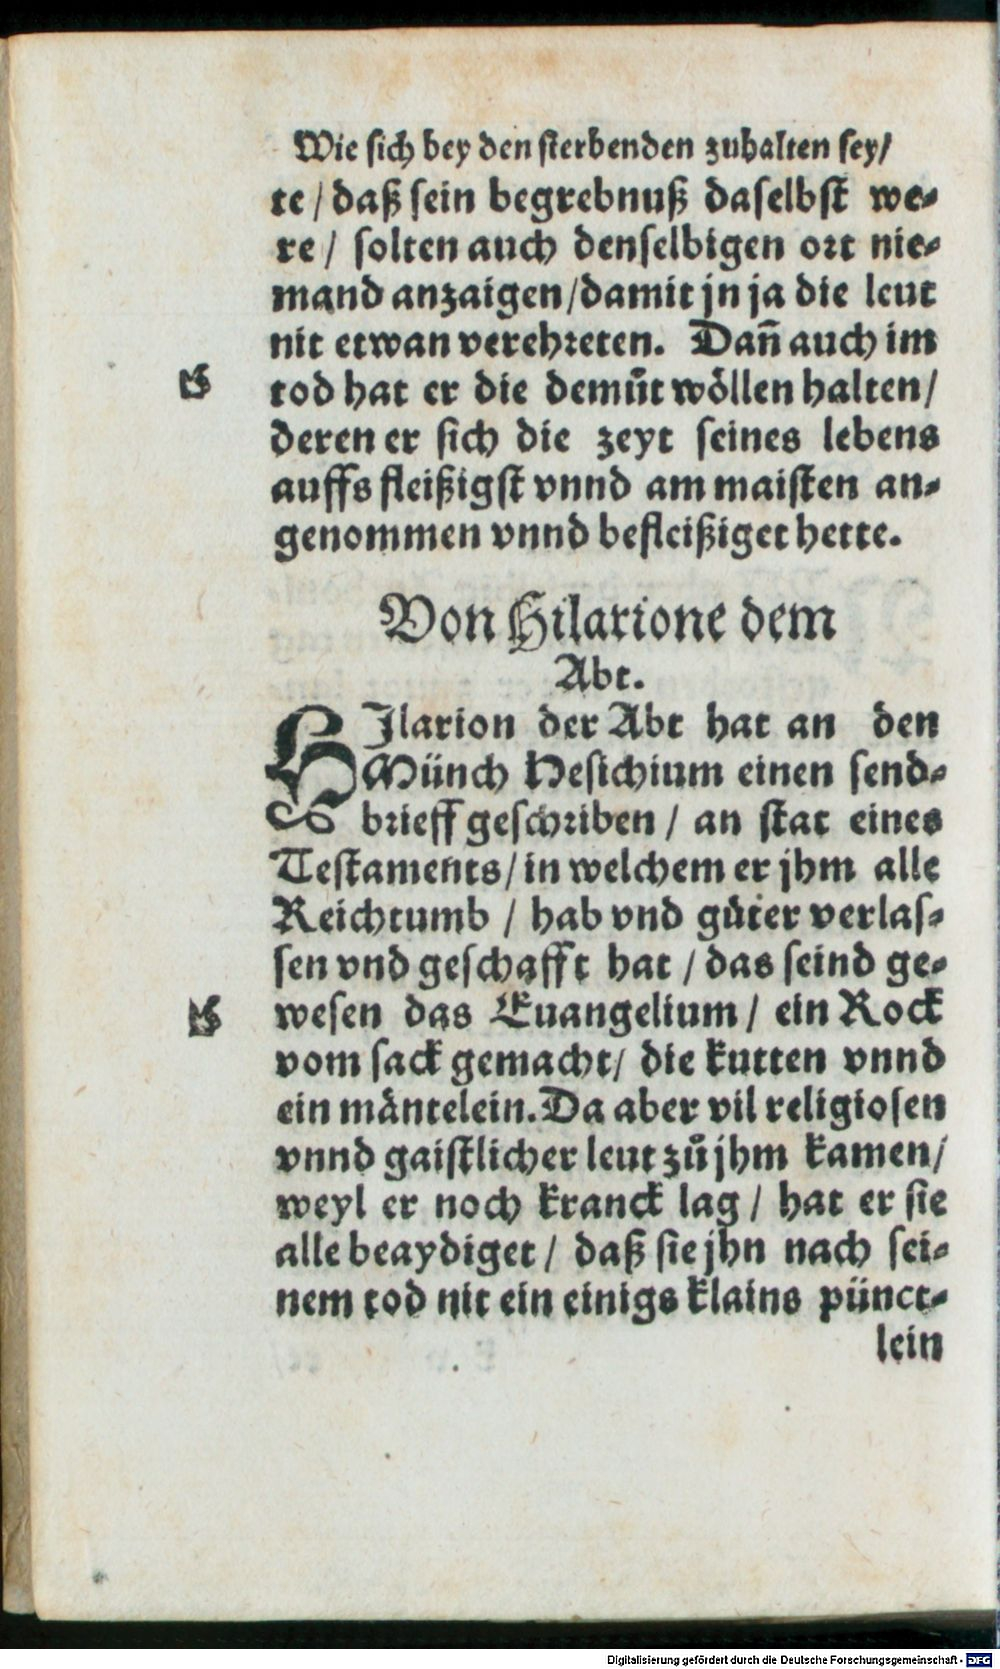 Wie sich bey den sterbenden zuhalten sey/
te / daß sein begrebnuß daselbst we-
re / solten auch denselbigen ort nie-
mand anzaigen/damit jn ja die leut
nit etwan verehreten. Dañ auch im
tod hat er die demůt wöllen halten/
deren er sich die zeyt seines lebens
auffs fleißigst vnnd am maisten an-
genommen vnnd befleißiget hette.
Von Hilarione dem
Abt.
HIlarion der Abt hat an den
Münch Hesichium einen send-
brieff geschriben / an stat eines
Testaments/in welchem er jhm alle
Reichtumb / hab vnd gůter verlas-
sen vnd geschafft hat / das seind ge-
wesen das Euangelium / ein Rock
vom sack gemacht/ die kutten vnnd
ein mäntelein.Da aber vil religiosen
vnnd gaistlicher leut zů jhm kamen/
weyl er noch kranck lag / hat er sie
alle beaydiget / daß sie jhn nach sei-
nem tod nit ein einigs klains pünct-
lein
Digitalisierung gefördert durch die Deutsche Forschungsgemeinschaft - DFG